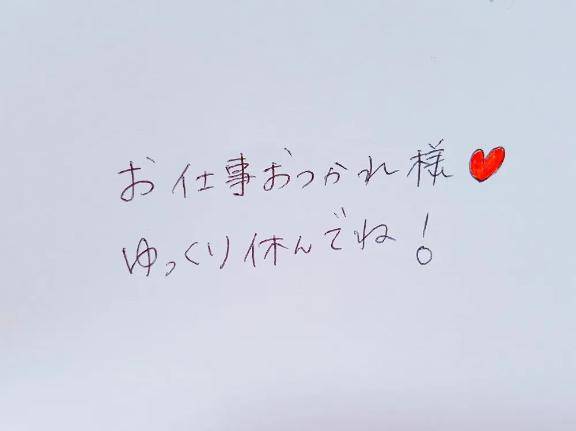 お仕事おつかれ様❤
ゆっくり休んでね！